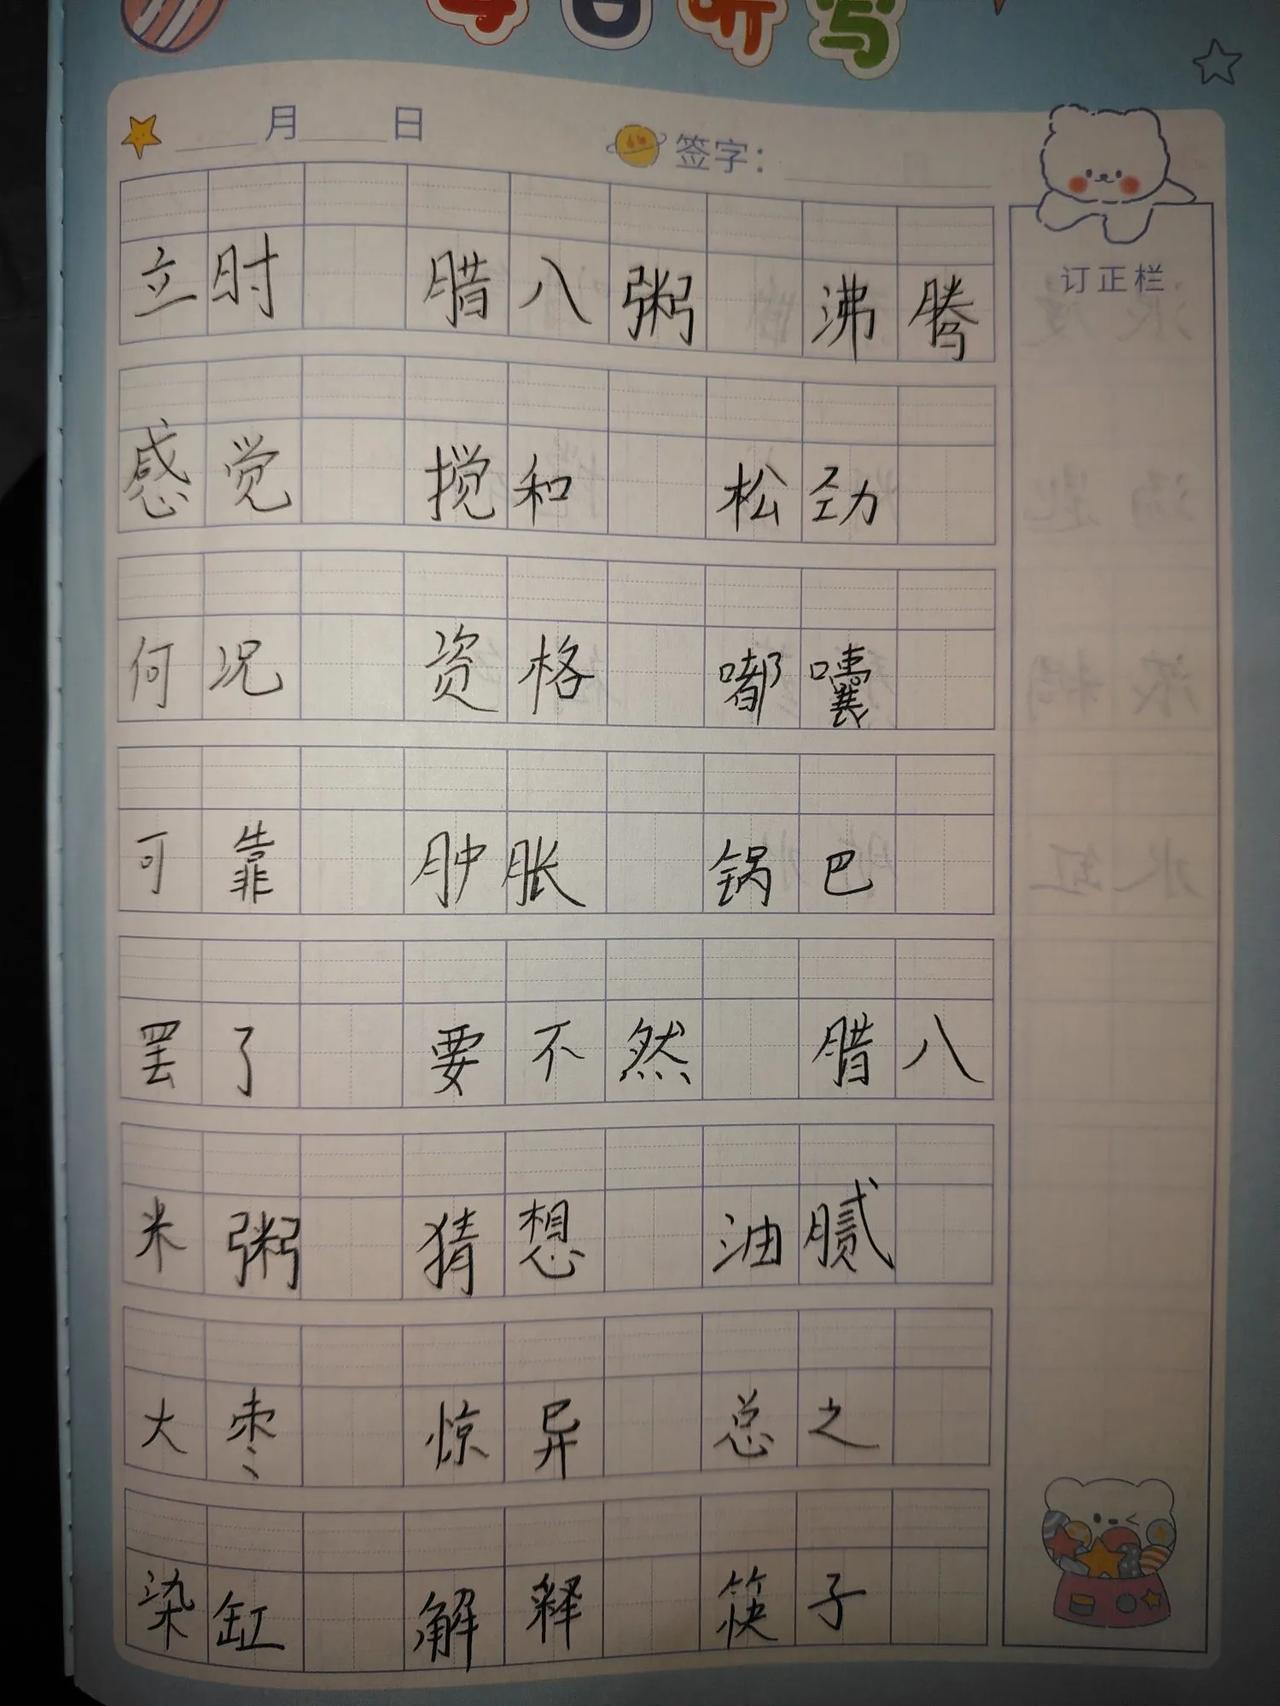 每日听写
月 日 签字：
订正栏
立时 腊八粥 沸腾
感觉 搅和 松劲
何况 资格 嘟囔
可靠 肿胀 锅巴
罢了 要不然 腊八
米粥 猜想 油腻
大枣 惊异 总之
染缸 解释 筷子